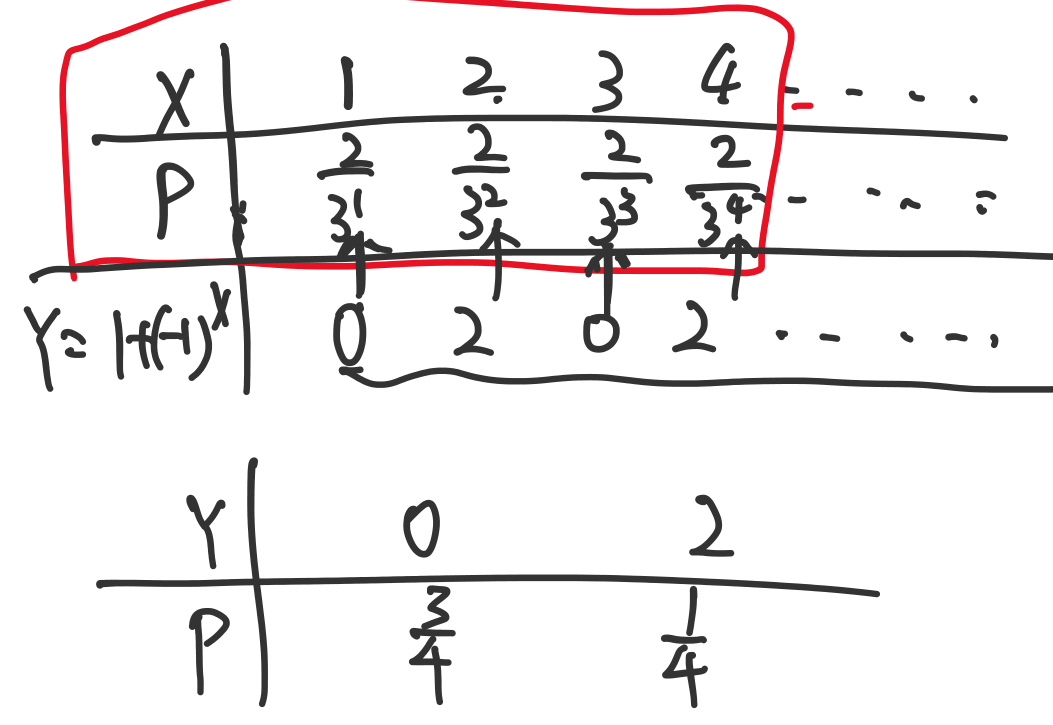 X 1 2 3 4 ....
P 2/3^1 2/3^2 2/3^3 2/3^4 ....
Y=1+(-1)^X 0 2 0 2 ....
Y 0 2
P 3/4 1/4